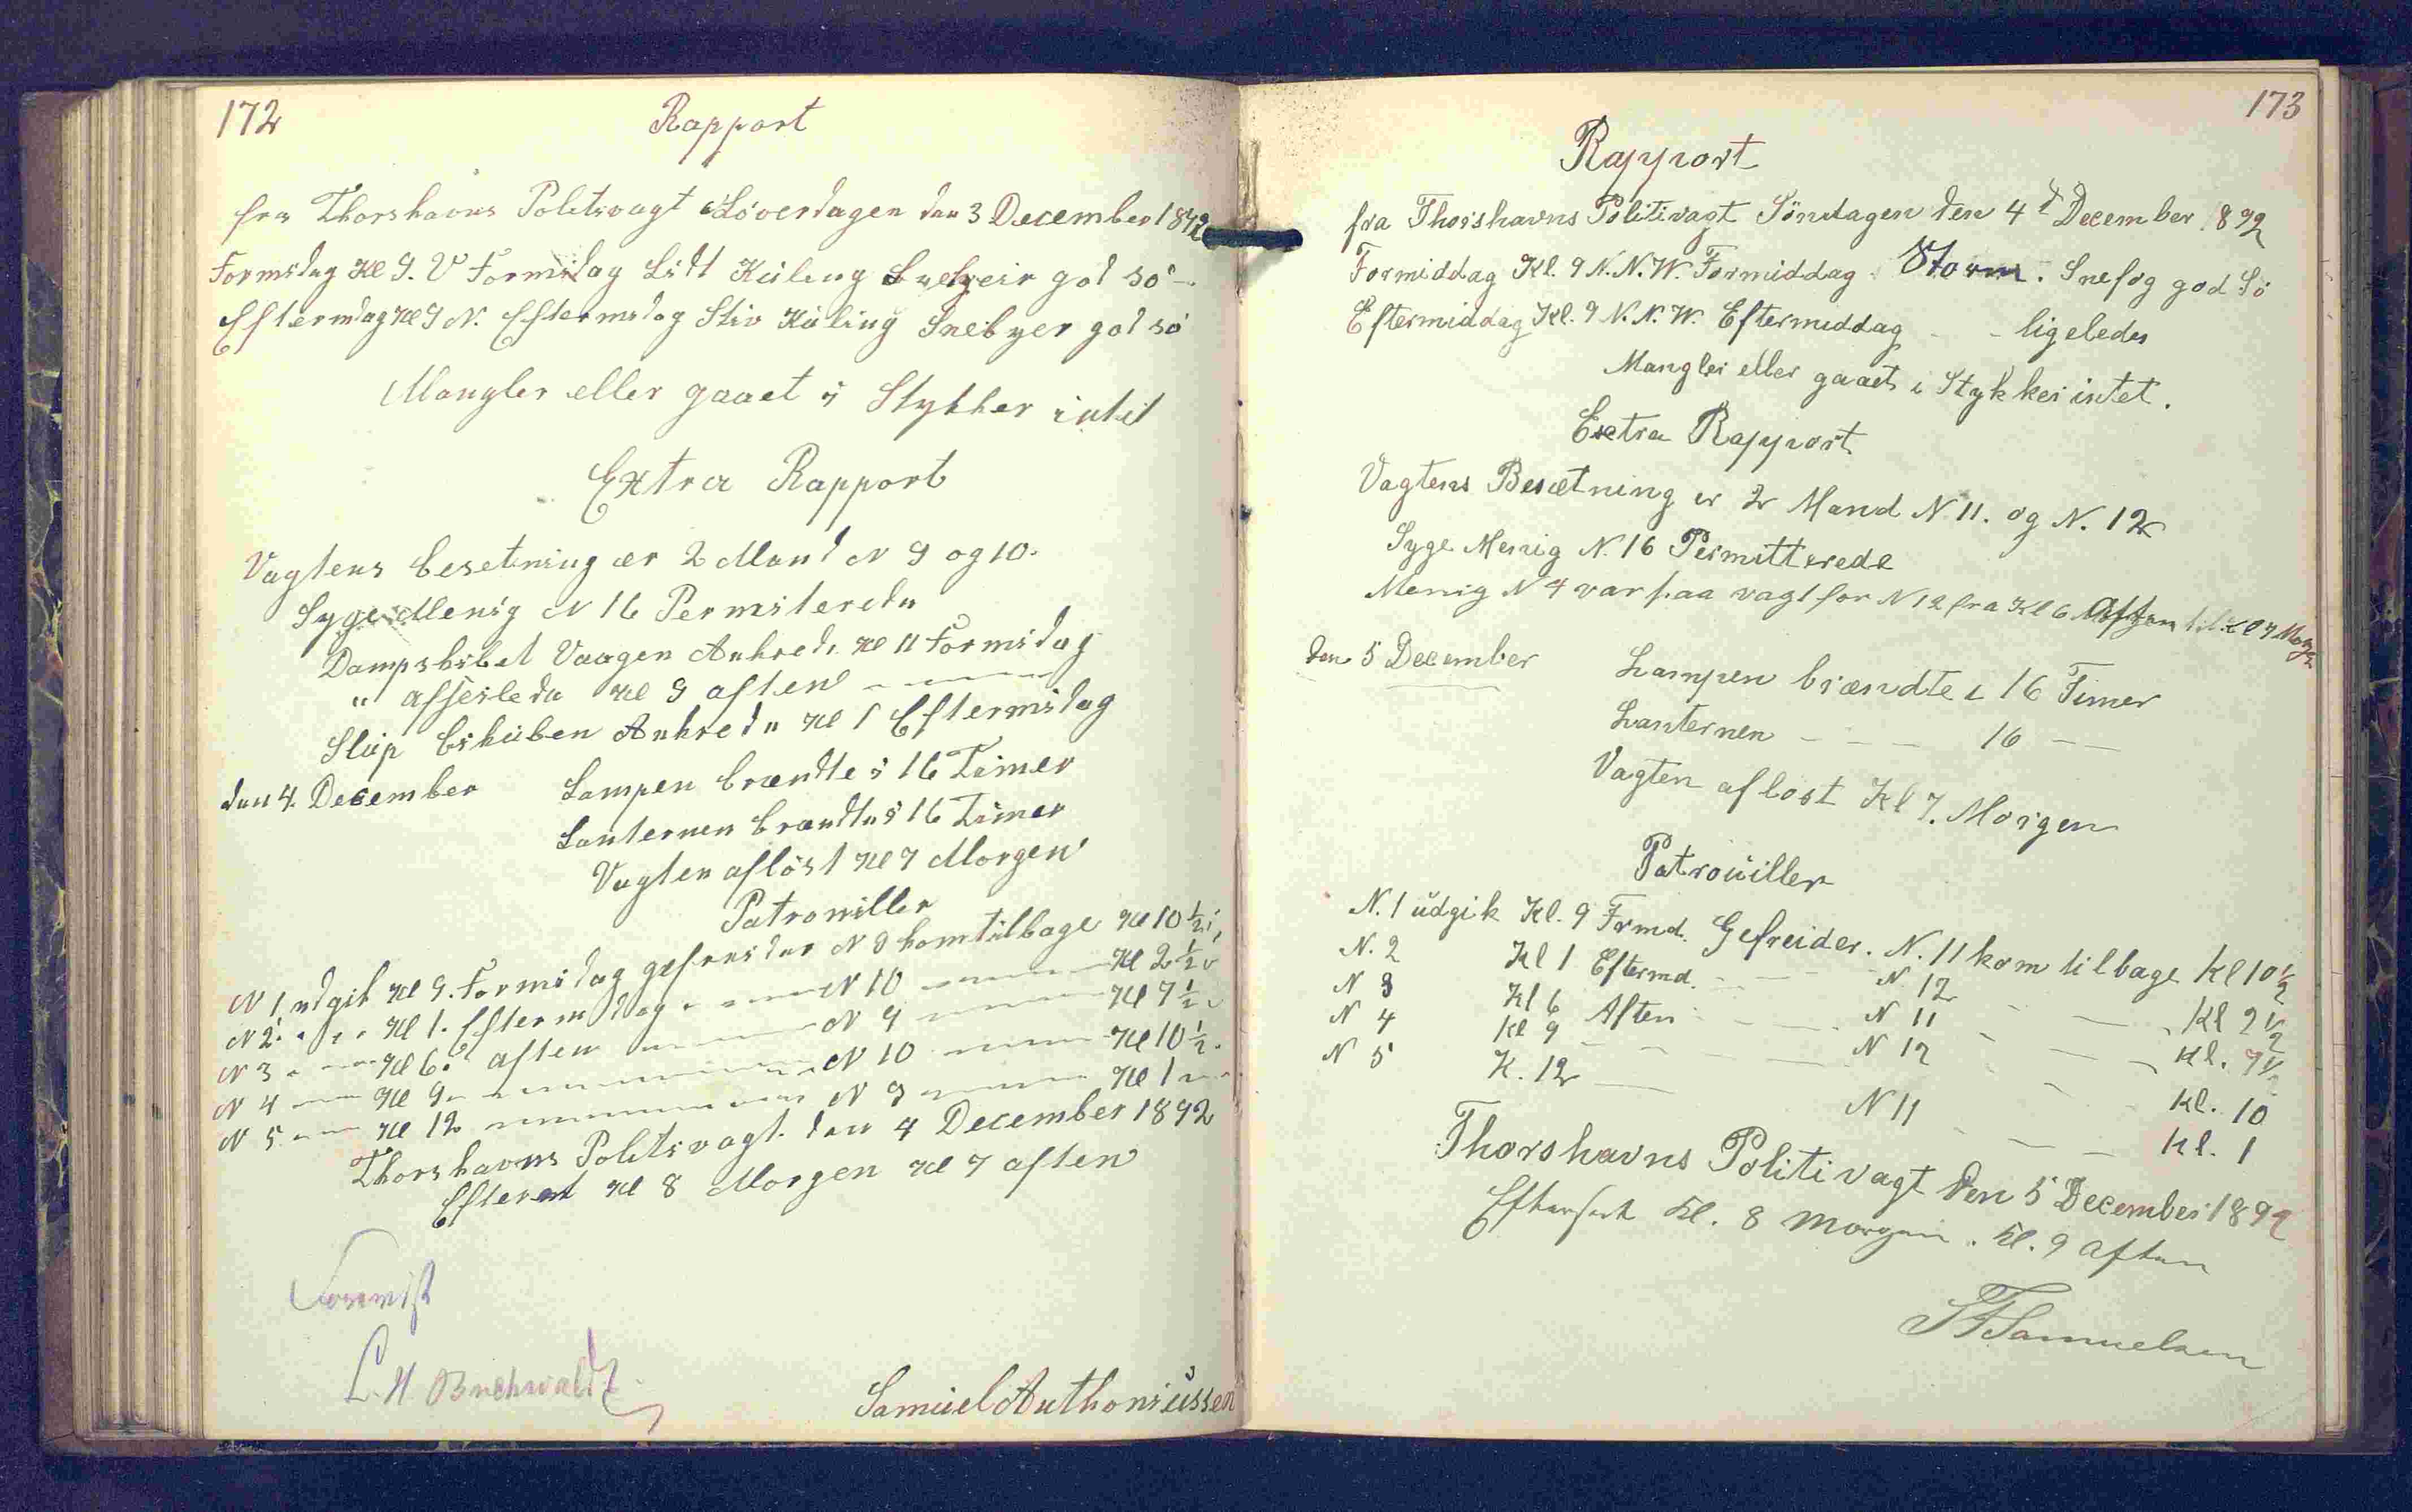 172
Rapport
fra Thorshavns Politivagt Löverdagen den 3 December 1892
Formidag Kl 9. V Formidag Lidt Küling god sö
Eftermdag Kl 9 N. Eftermidag Stiv Küling Snebyer god sö
Mangler eller gaaet i Stykker intet
Extra Rapport
Vagtens besetning er 2 Mand N 9 og 10.
Syge Menig N 16 Permiterede
Dampskibet Vaagen Ankrede Kl 11 Formidag
" afseilede Kl 9 aften
Slup Ankrede Kl 1 Eftermidag
den 4. December Lampen brændte i 16 Timer
Lanternen brændte i 16 Timer
Vagten aflöst Kl 7 Morgen
Patrouiller
N 1 udgik Kl 9. Formidag gefreider N 9 kom tilbage Kl 10 1/2
N 2 Kl 1. Eftermdag N 10 Kl 2 1/2
N 3 Kl 6. aften N 9 Kl 7 1/2
N 4 Kl 9 N 10 Kl 10 1/2
N 5 Kl 12 N 9 Kl 1
Thorshavns Politivagt. den 4 December 1892
Kl 8 Morgen Kl 7 aften
L. H. Buchwaldt
Samüel Anthoniüssen
173
Rapport
fra Thorshavns Politivagt Söndagen den 4d December 1892
Formiddag Kl. 9 N.N.W. Formiddag Storm. Snefog god Sö
Eftermiddag Kl. 9 N.N.W. Eftermiddag - - ligeledes
Mangler eller gaaet i Stykker intet.
Extra Rapport
Vagtens Besætning er 2 Mand N 11. og N. 12
Syge Menig N. 16 Permitterede
Menig N 4 var paa vagt for N 12 fra Kl 6 Aften til Kl 7 Morgen
den 5 December Lampen brændte i 16 Timer
Lanternen - - - 16 -
Vagten aflöst Kl 7. Morgen
Patrouiller
N. 1 üdgik Kl. 9 Frmd. Gefreider. N. 11 kom tilbage Kl 10 1/2
N. 2 Kl 1 Eftermd. - - N. 12 - - Kl 2 1/2
N 3 Kl 6 Aften - - N 11 - - Kl. 7 1/2
N 4 Kl 9 - - N 12 - - Kl. 10
N 5 K. 12 - N 11 - - Kl. 1
Thorshavns Politivagt den 5 December 1892
Kl. 8 Morgen. Kl. 9 aften
Samuelsen